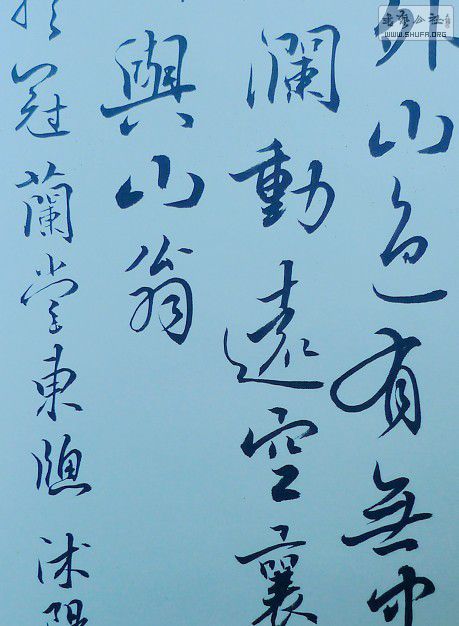 外山色有無中
瀾動遠空襄
與山翁
冠蘭堂東牕沭陽
書藝公社
WWW.SHUFA.ORG